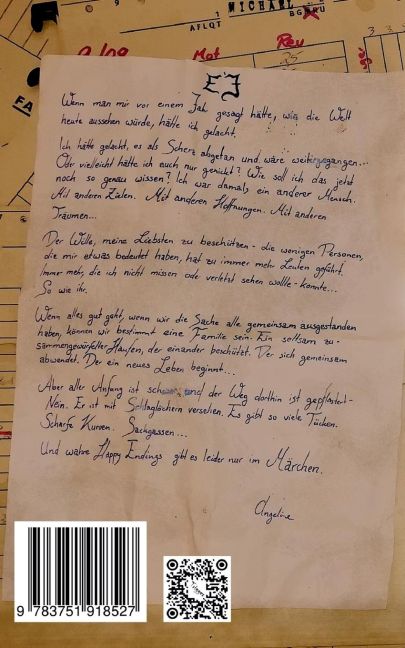 1
AFLQT
MICHAEL
Mot
Rev
FA
EJ
Wenn man mir vor einem Jahr gesagt hätte, wie die Welt
heute aussehen würde, hätte ich gelacht.
Ich hätte gelacht, es als Scherz abgetan und wäre weitergegangen...
Oder vielleicht hätte ich auch nur genickt? Wie soll ich das jetzt
noch so genau wissen? Ich war damals ein anderer Mensch.
Mit anderen Zielen. Mit anderen Hoffnungen. Mit anderen
Träumen...
Der Wille, meine Liebsten zu beschützen - die wenigen Personen,
die mir etwas bedeutet haben, hat zu immer mehr Leuten geführt.
Immer mehr, die ich nicht missen oder verletzt sehen wollte - konnte...
So wie ihr.
Wenn alles gut geht, wenn wir die Sache alle gemeinsam ausgestanden
haben, können wir bestimmt eine Familie sein. Ein seltsam zu-
sammengewürfelter Haufen, der einander beschützt. Der sich gemeinsam
abwendet. Der ein neues Leben beginnt...
Aber aller Anfang ist schwer und der Weg dorthin ist gepflastert -
Nein. Er ist mit Schlaglöchern versehen. Es gibt so viele Tücken.
Scharfe Kurven. Sackgassen...
Und wahre Happy Endings gibt es leider nur im Märchen.
Angeline
9 783751 918527